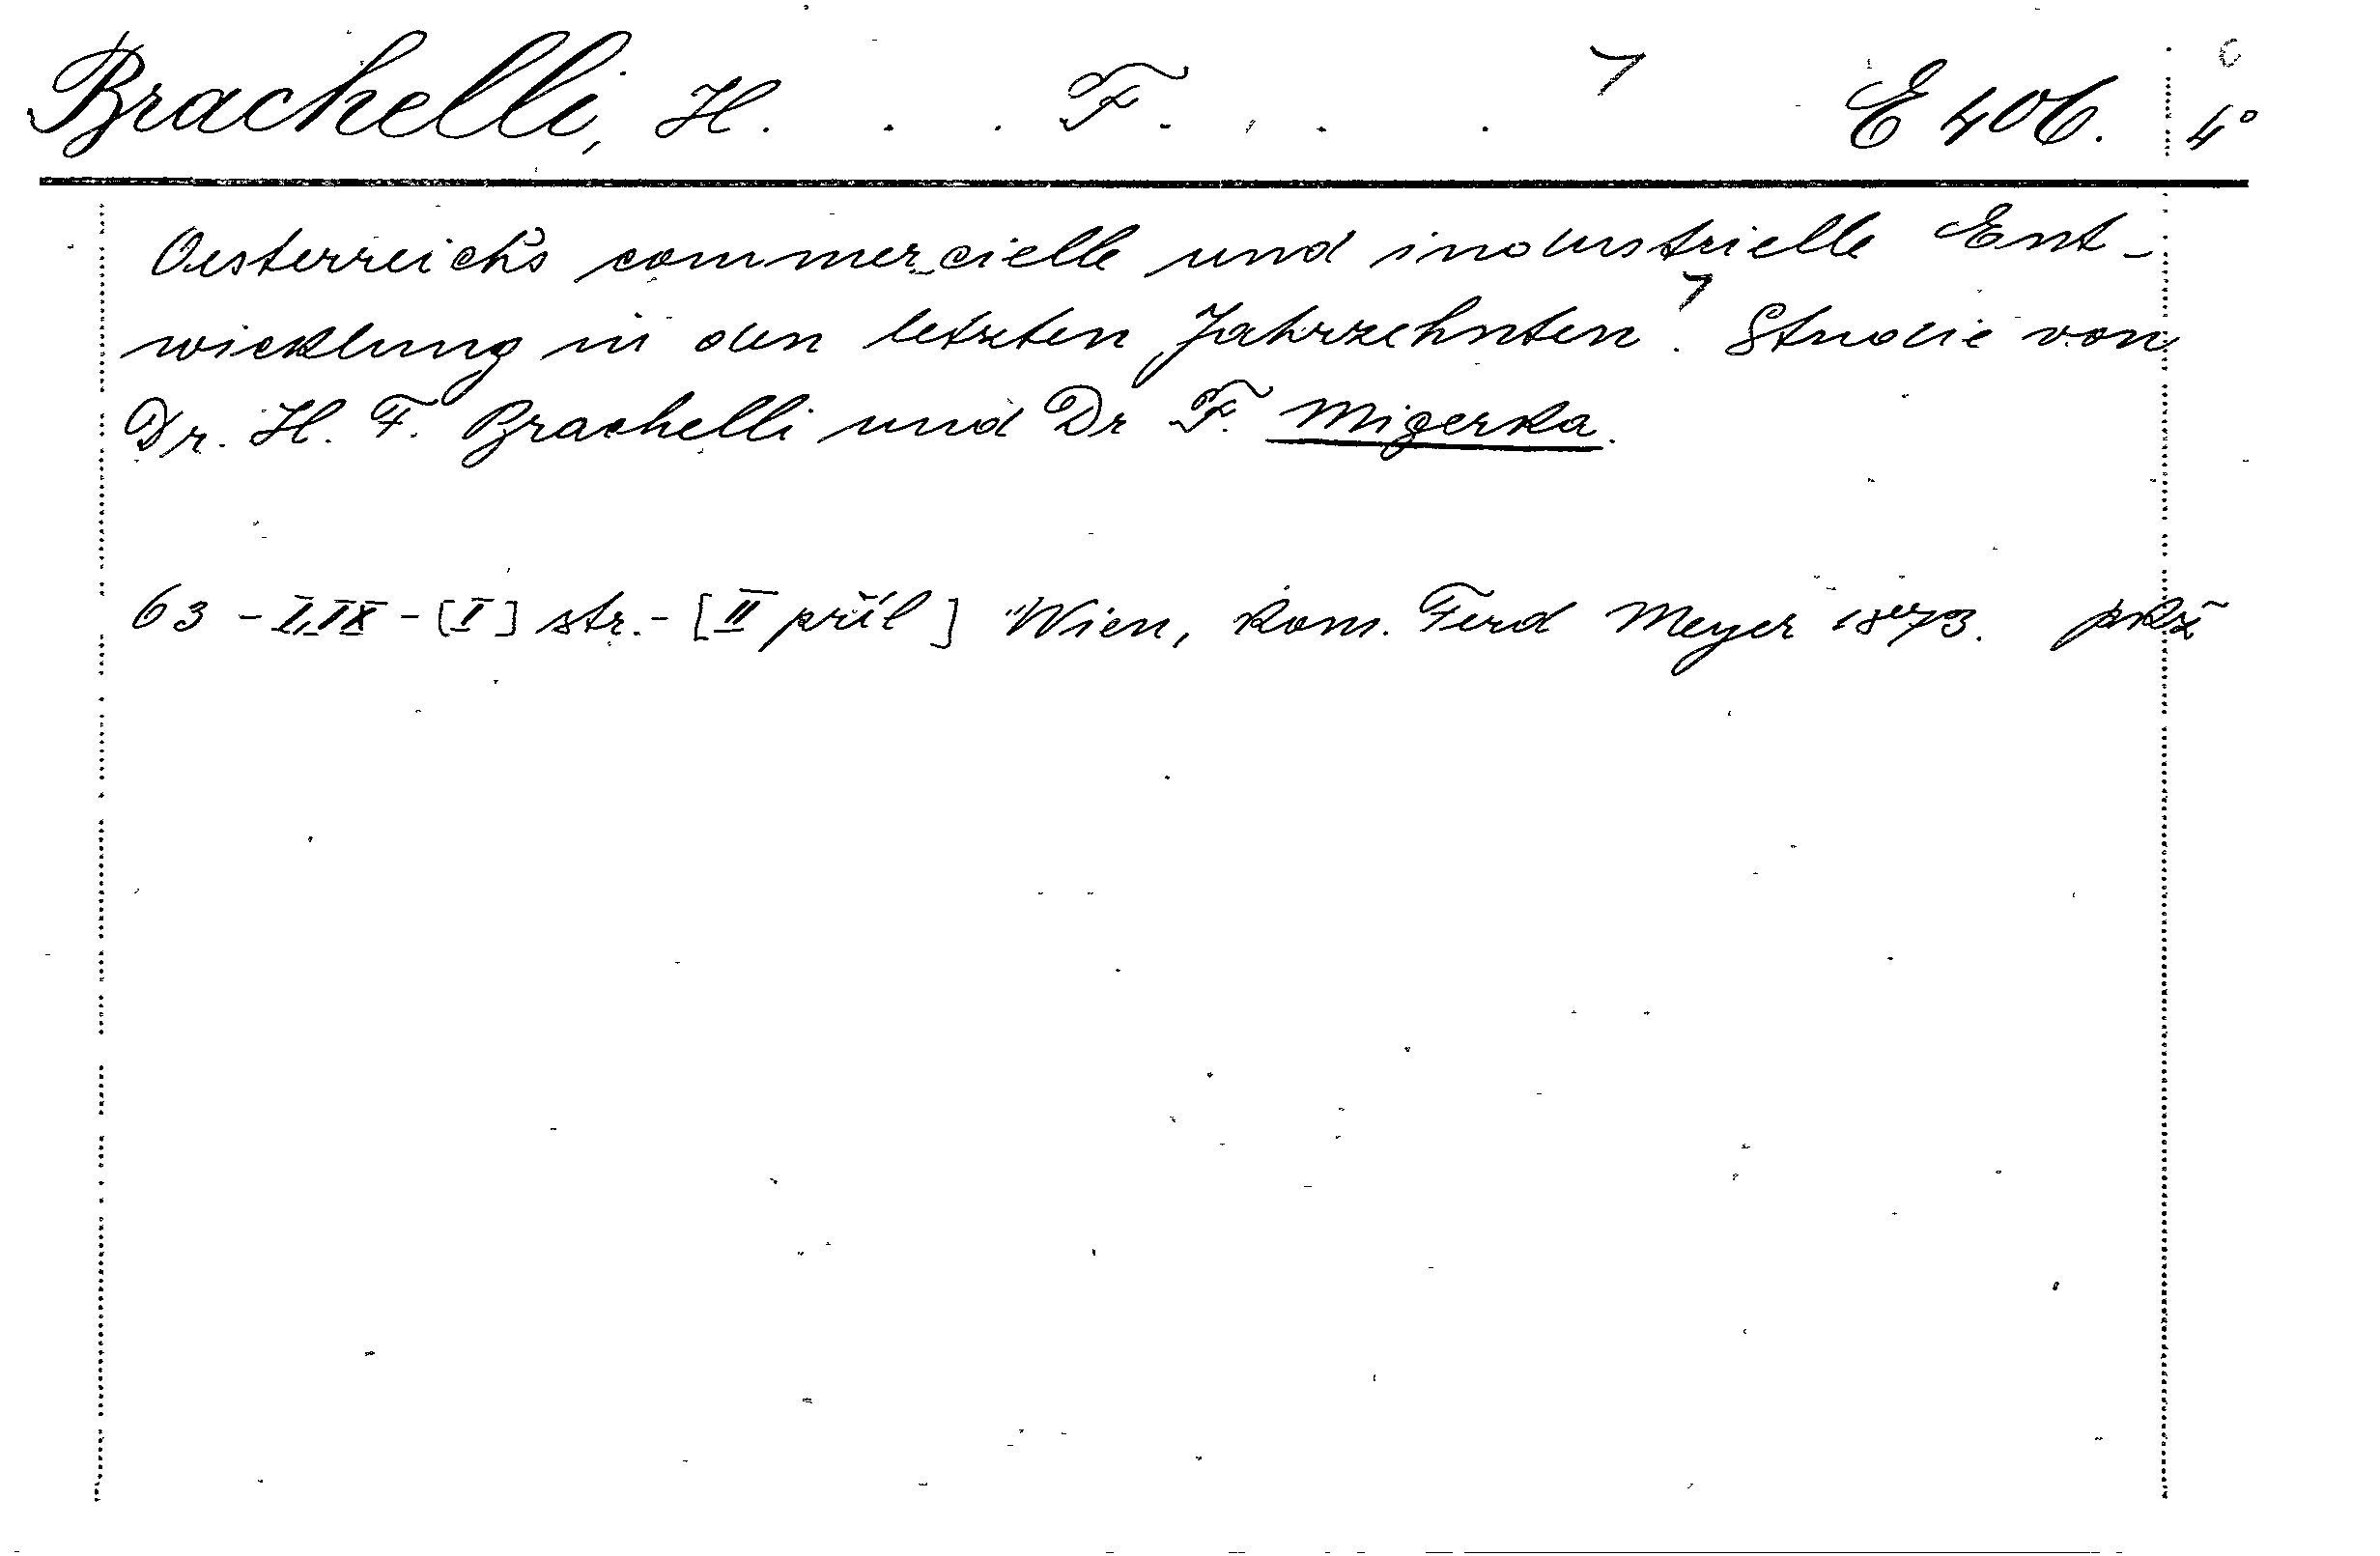 Brachelli, H. F. E 406. 4°
Oesterreich's commercielle und industrielle Ent-
wicklung in den letzten Jahrzehnten. Studie von
Dr. H. F. Brachelli und Dr F. Migerka.
63 - I,IX - [I] str. - [II příl] Wien, kom. Ferd Meyer 1873. pkž